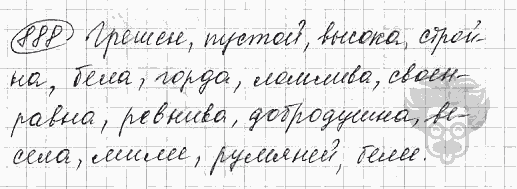 888 Грешен, пустой, высока, строй-
на, бела, горда, ломлива, своен-
равна, ревнива, добродушна, ве-
села, милее, румяней, белее.